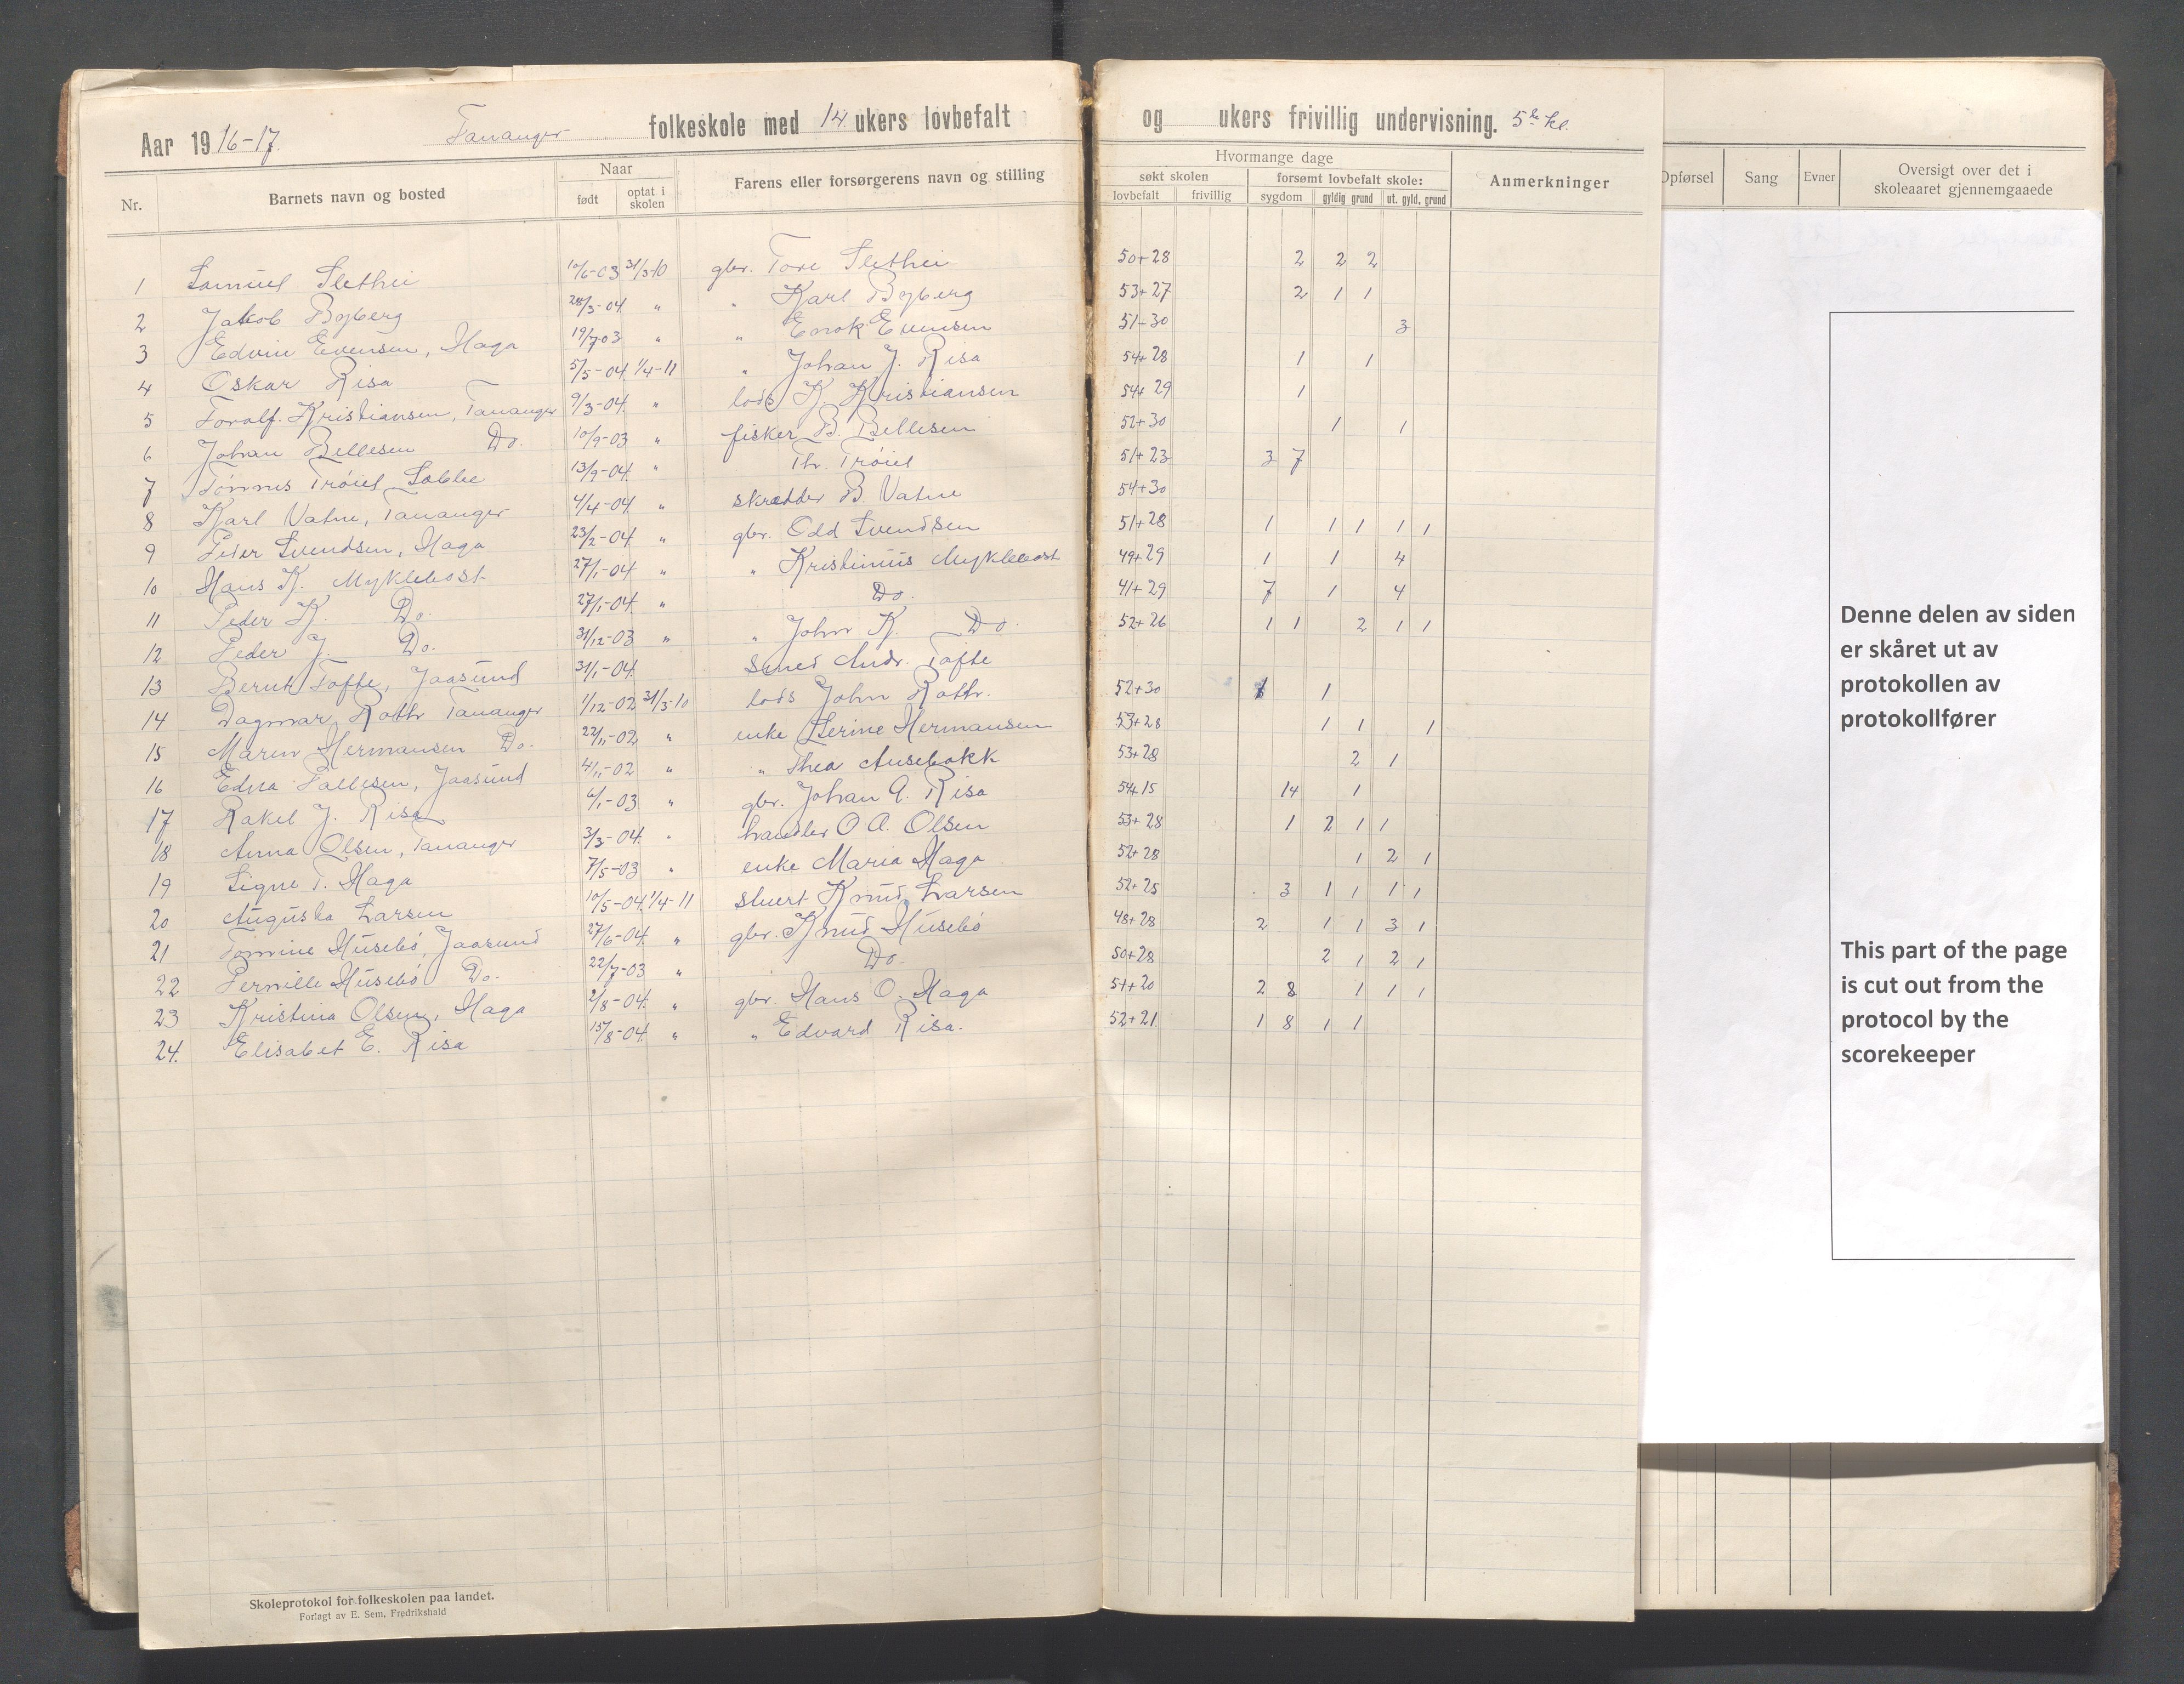 Aar 1916-17. Tananger folkeskole med 14 ukers lovbefalt og ukers frivillig undervisning. 5te kl.
Nr. Barnets navn og bosted Naar født optat i skolen Farens eller forsørgerens navn og stilling Hvormange dage søkt skolen lovbefalt frivillig forsømt lovbefalt skole: sygdom gyldig grund ut. gyld. grund Anmerkninger
Opførsel Sang Evner Oversigt over det i skoleaaret gjennemgaaede
1 Samuel Slethei 10/6-03 31/3-10 gbr. Tore Slethei 50+28 2 2 2
2 Jakob Byberg 28/3-04 " " Karl Byberg 53+27 2 1 1
3 Edvin Evensen, Haga 19/7-03 " " Enok Evensen 51-30 3
4 Oskar Risa 5/5-04 1/4-11 " Johan J. Risa 54+28 1 1
5 Toralf Kristiansen, Tananger 9/3-04. " lods K. Kristiansen 54+29 1
6 Johan Bellesen Do. 10/9-03 " fisker B. Bellesen 52+30 1 1
7 Tønnes Trøiel 13/9-04. " Th. Trøiel 51+23 3 7
8 Karl Vatne, Tananger 4/4-04. " skrædder B. Vatne 54+30
9 Peder Svendsen, Haga 23/2-04 " gbr. Odd Svendsen 51+28 1 1 1 1 1
10 Hans K. Myklebost 27/1-04. " " Kristinius Myklebost 49+29 1 1 4
11 Peder K. Do. 27/1-04. " Do. 41+29 7 1 4
12 Peder J. Do. 31/12-03 " " John K. Do. 52+26 1 1 2 1 1
13 Berent Tofte, Jaasund 31/1-04. Smed Andr. Tofte
14 Dagmar Roth Tananger 1/12-02 31/3-10 lods John Roth. 52+30 1 1
15 Maren Hermansen Do. 22/11-02 " enke Serine Hermansen 53+28 1 1 1
16 Edna Tallesen, Jaasund 4/11-02 " " Thea 53+28 2 1
17 Rakel J. Risa 6/1-03 " gbr. Johan A. Risa 54+15 14 1
18 Anna Olsen, Tananger 3/3-04. " handler O. A. Olsen 53+28 1 2 1 1
19 Signe T. Haga 7/5-03 " enke Maria Haga 52+28 1 2 1
20 Augusta Larsen 10/5-04. 1/4-11 stuert Knud Larsen 52+25 3 1 1 1 1
21 Tomine Husebø, Jaasund 27/6-04. " gbr. Knud Husebø 48+28 2 1 1 3 1
22 Pernille Husebø Do. 22/7-03 " Do. 50+28 2 1 2 1
23 Kristina Olsen, Haga 2/8-04. " gbr. Hans O. Haga 51+20 2 8 1 1 1
24. Elisabet E. Risa 15/8-04. " " Edvard Risa. 52+21 1 8 1 1
Denne delen av siden
er skåret ut av
protokollen av
protokollfører
This part of the page
is cut out from the
protocol by the
scorekeeper
Skoleprotokol for folkeskolen paa landet.
Forlagt av E. Sem, Fredrikshald